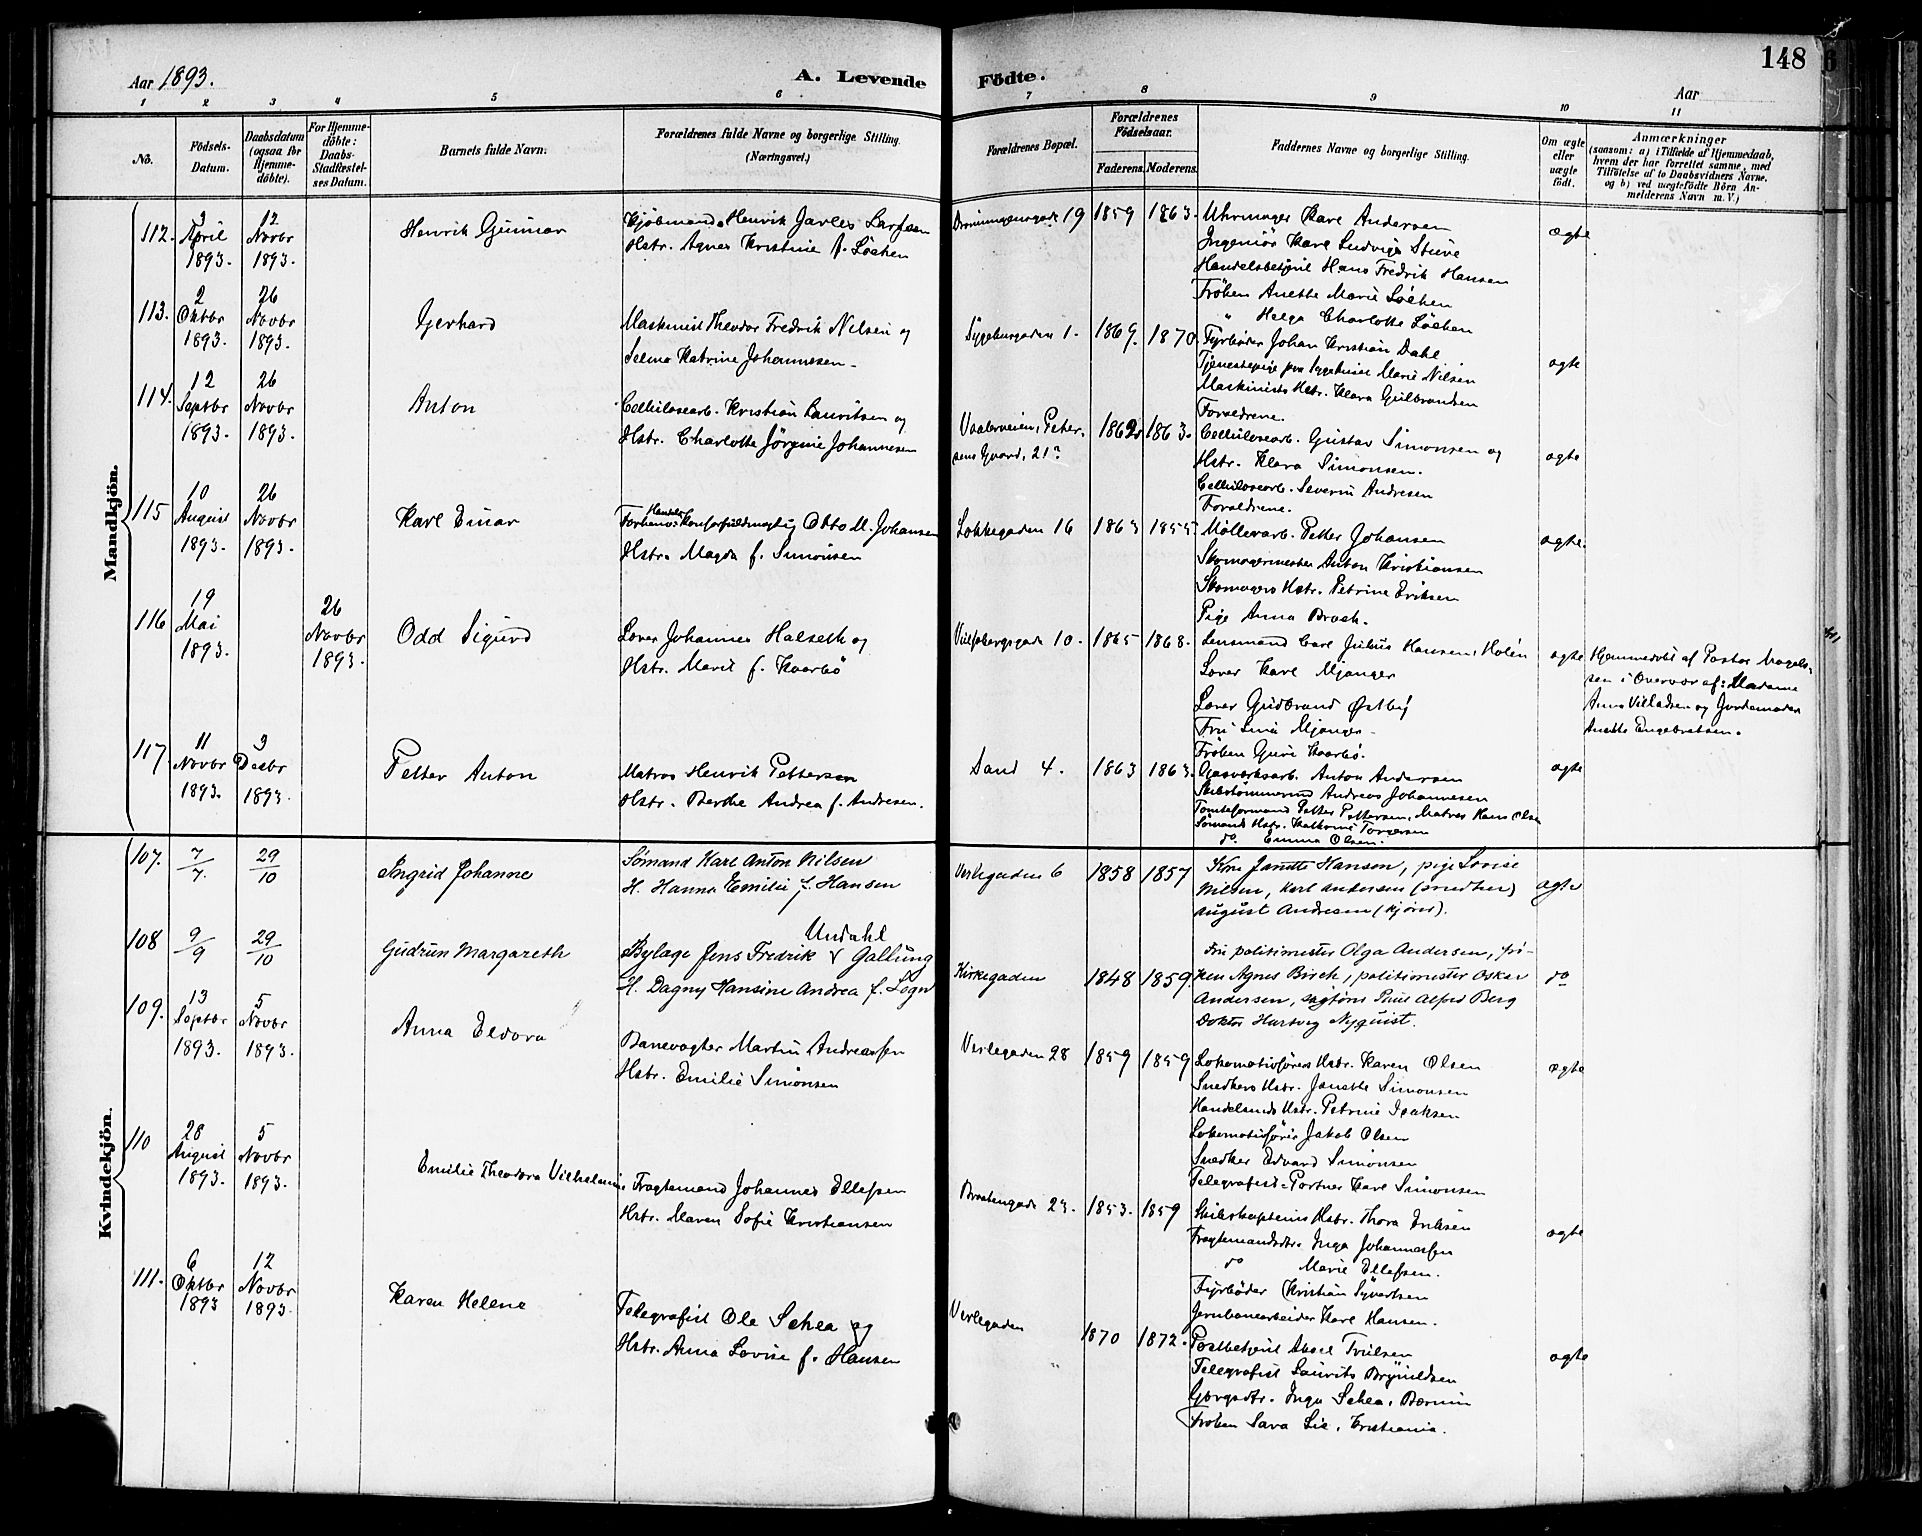 148
Aar 1893.
A. Levende
Födte.
Aar
1 2 3 4 5 6 7 8 9 10 11
No.
Födsels-
Datum.
Daabsdatum
(ogsaa for
Hjemme-
döbte).
For Hjemme-
döbte:
Daabs-
Stadfæstel-
ses Datum.
Barnets fulde Navn.
Forældrenes fulde Navne og borgerlige Stilling.
(Næringsvei.)
Forældrenes Bopæl.
Forældrenes
Födselsaar.
Faderens. Moderens.
Faddernes Navne og borgerlige Stilling.
Om ægte
eller
uægte
født.
Anmærkninger
(saasom: a) i Tilfælde af Hjemmedaab,
hvem der har forrettet samme, med
Tilföielse af to Daabsvidners Navne,
og b) ved uegtefödte Börn An-
melderens Navn m. V.)
Mandkjön.
112.
3
April
1893.
12
Novbr
1893.
Henrik Gunnar
Kjöbmand Henrik Jarles Larssen
Hstr. Agnes Kristine f. Löchen
19 1859 1863.
Uhrmager Karl Andersen
Ingeniör Karl Ludvig Stüve
Handelsbetjent Hans Fredrik Hansen
Fröken Anette Marie Löchen
" Helga Charlotte Löchen
ægte
113.
2
Oktbr
1893.
26
Novbr
1893.
Gerhard
Maskinist Theodor Fredrik Nilsen og
Selma Katrine Johannesen
Sygehusgaden 1. 1869. 1870
Fyrböder Johan Kristian Dahl
Tjenestepige paa Sygehuset Marie Nilsen
Maskinists Hstr. Klara Gulbrandsen
Forældrene.
ægte
114.
12
Septbr
1893.
26
Novbr
1893.
Anton
Cellulosearb. Kristian Lauritsen og
Hstr. Charlotte Jörgine Johannesen
Vaalerveien, Peter-
sens Gaard, 21
1862 1863.
Cellulosearb. Gustav Simonsen og
Hstr. Klara Simonsen.
Cellulosearb. Severin Andresen
Forældrene.
ægte
115
10
August
1893.
26
Novbr
1893.
Karl Einar
Otto M. Johansen
Hstr. Magda f. Simonsen
Lökkegaden 16 1863 1855
Möllerarb. Petter Johansen
Skomagermester Anton Kristiansen
Skomagers Hstr. Petrine Eriksen
Pige Anna Brock.
ægte.
116
19
Mai
1893.
26
Novbr
1893.
Odd Sigurd
Lærer Johannes Halseth og
Hstr. Marit f. Kaarbö
10. 1865 1868.
Lensmand Carl Julius Hansen, Holén
Lærer Karl Mjanger
Lærer Gudbrand Østby
Fru Mjanger
Fröken Guri Kaarbö.
ægte
Hjemmedöbt af Pastor Magels-
sen i Overvær af: Madame
Anna Villadsen og Jordemoder
Anette Engebretsen.
117
11
Novbr
1893.
3
Decbr
1893.
Petter Anton
Matros Henrik Pettersen
Hstr. Berthe Andrea f. Andresen.
Sand 4. 1863 1863.
Gasværksarb. Anton Andersen
Skibstömmermd Andreas Johannesen
Tomteformand Petter Pettersen, Matros Hans Olsen
Sömands Hstr. Kathrine Torgersen
do. Emma Olsen.
ægte
Kvindekjön.
107.
7/7.
29/10
Ingrid Johanne
Sømand Karl Anton Nilsen
H. Hanna Emilie f. Hansen
Verlegaden 6 1858 1857
Kone Janette Hansen, pige Lovise
Nilsen, Karl Andersen (snedker)
August Andresen (kjører).
ægte
108
9/9
29/10
Gudrun Margareth
Undahl
Bylæge Jens Fredrik Gallung
H. Dagny Hansine Andrea f. Sogn
Kirkegaden 1848 1859.
Fru politimester Olga Andersen, frö-
ken Agnes Birch, politimester Oskar
Andersen, Poul Alfred Berg
Doktor Hartvig Nyquist.
do
109.
13
Septbr
1893.
5
Novbr
1893.
Anna Eldora
Banevogter Martin Andreassen
Hstr. Emilie Simonsen
Verlegaden 28 1859 1859
Lokomotivförers Hstr. Karen Olsen
Snedkers Hstr. Janette Simonsen
Handelsmds Hstr. Petrine Isaksen
Lokomotivförer Jakob Olsen
Snedker Edvard Simonsen
Telegrafist. Portner Karl Simonsen
ægte
110
28
August
1893.
5
Novbr
1893.
Emilie Theodora Vilhelmine
Fragtemand Johannes Ellefsen
Hstr. Maren Sofie Kristiansen
Braatengade 23. 1853. 1859
Skibskapteins Hstr. Thora Eriksen
Fragtemandsdtr. Inga Johannessen
do Marie Ellefsen.
Fyrböder Kristian Syvertsen
Jernbanearbeider Karl Hansen.
ægte
111.
6
Oktbr
1893
12
Novbr
1893.
Karen Helene
Telegrafist Ole Schea og
Hstr. Anna Lovise f. Hansen
Verlegaden 1870 1872.
Postbetjent Aksel Trulsen
Telegrafist Laurits Brynildsen
Gbrgsdtr. Inga Schea, Bærum
Fröken Sara Lie, Kristiania.
ægte